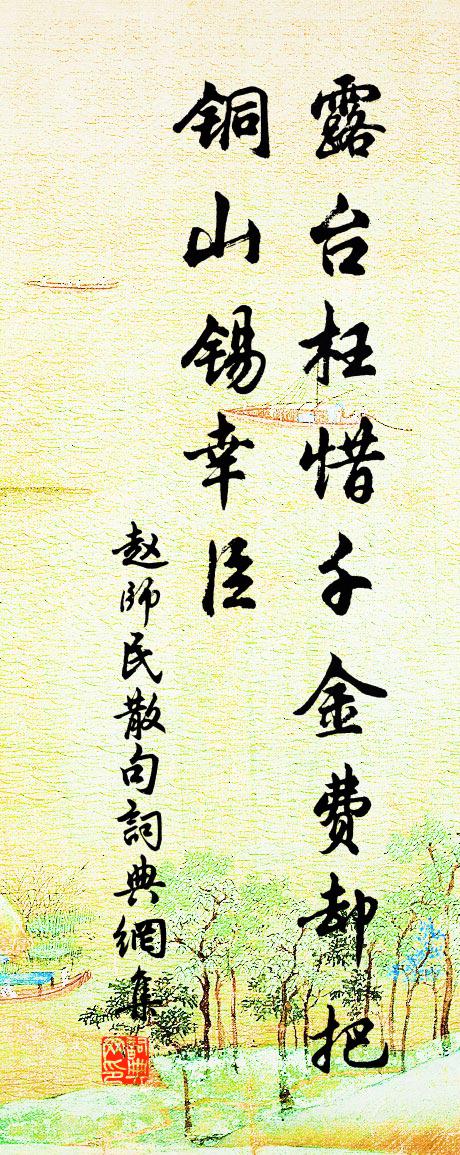 露台枉惜千金费却把
铜山锡幸臣
赵师民散句詞典網集